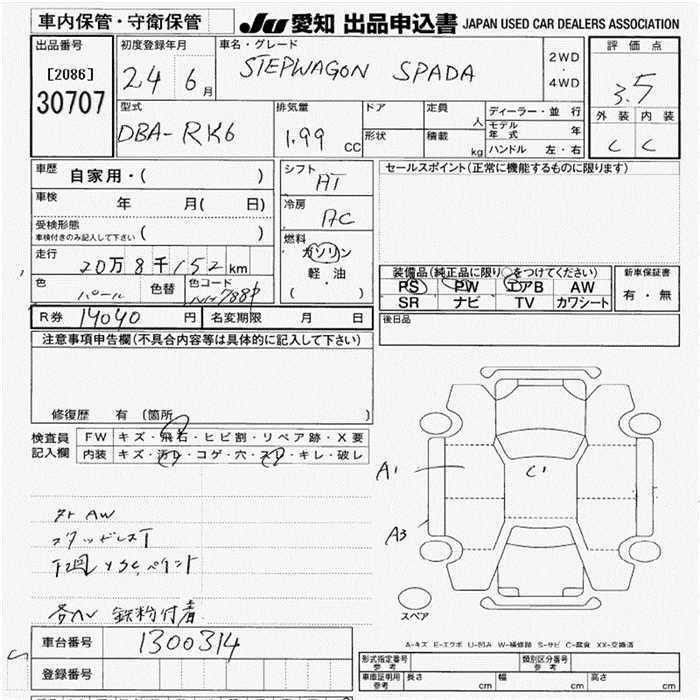 車内保管・守衛保管
JU 愛知 出品申込書 JAPAN USED CAR DEALERS ASSOCIATION
出品番号
[2086]
30707
初度登録年月
24 6月
車名・グレード
STEPWAGON SPADA
2WD
・
4WD
評価点
3.5
外装 内装
C C
型式
DBA-RK6
排気量
1.99 CC
ドア
形状
定員 人
積載 kg
ディーラー・並行
モデル年式 年
ハンドル 左・右
車歴 自家用・( )
車検 年 月( 日)
受検形態
車検付きのみ記入して下さい ( )
走行 20万8千152km
色 パール 色替 色コード
シフト AT
冷房 AC
燃料
ガソリン
軽・油
( )
セールスポイント(正常に機能するものに限ります)
装備品(純正品に限り○をつけてください)
PS PW エアB AW
SR ナビ TV カワシート
新車保証書
有・無
後日品
R券 14040円 名変期限 月 日
注意事項申告欄(不具合内容等は具体的に記入して下さい)
修復歴 有 [箇所 ]
検査員記入欄
FW キズ・飛石・ヒビ割・リペア跡・X要
内装 キズ・汚レ・コゲ・穴・スレ・キレ・破レ
A1
C1
A3
スペア
外AW
スタッドレスT
下回 ペイント
各ハル 鉄粉付着
車台番号 1300314
登録番号
A-キズ E-エクボ U-凹み W-補修跡 S-サビ C-腐食 XX-交換済
形式指定番号 参考
類別区分番号 参考
車庫証明用 参考 長さ cm 幅 cm 高さ cm